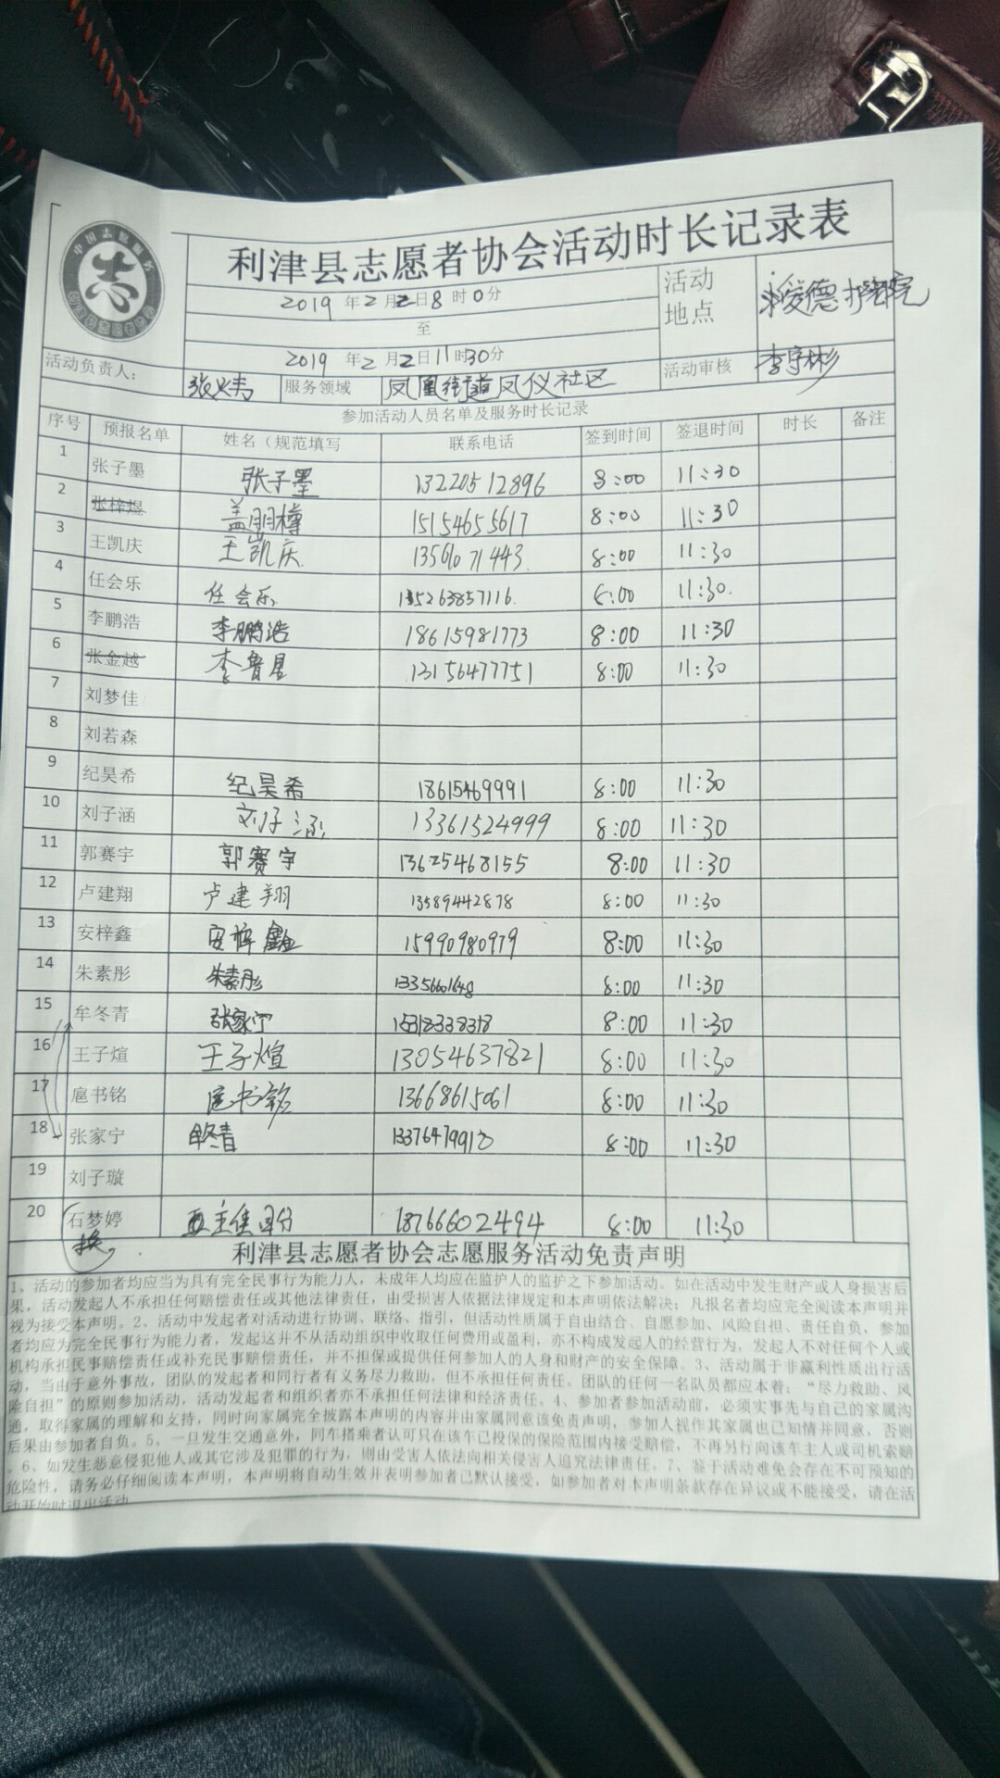 中国志愿服务
志
利津县志愿者协会活动时长记录表
2019 年 2 月 2 日 8 时 0 分
至
2019 年 2 月 2 日 11 时 30 分
活动地点
活动负责人：
服务领域 凤凰街道凤仪社区
活动审核 李宇彬
参加活动人员名单及服务时长记录
序号 预报名单 姓名（规范填写 联系电话 签到时间 签退时间 时长 备注
1 张子墨 张子墨 13220512896 8:00 11:30
2 张梓煜 15154655617 8:00 11:30
3 王凯庆 王凯庆 8:00 11:30
4 任会乐 任会乐 15263857116 8:00 11:30
5 李鹏浩 李鹏浩 18615981773 8:00 11:30
6 张金越 李鲁星 13156477751 8:00 11:30
7 刘梦佳
8 刘若森
9 纪昊希 纪昊希 18615469991 8:00 11:30
10 刘子涵 刘子涵 13361524999 8:00 11:30
11 郭赛宇 郭赛宇 13625468155 8:00 11:30
12 卢建翔 卢建翔 13589442878 8:00 11:30
13 安梓鑫 安梓鑫 15990980979 8:00 11:30
14 朱素彤 朱素彤 8:00 11:30
15 牟冬青 张家宁 8:00 11:30
16 王子煊 王子煊 13054637821 8:00 11:30
17 扈书铭 扈书铭 13668615061 8:00 11:30
18 张家宁 牟冬青 8:00 11:30
19 刘子璇
20 石梦婷 18766602494 8:00 11:30
换
利津县志愿者协会志愿服务活动免责声明
1、活动的参加者均应当为具有完全民事行为能力人，未成年人均应在监护人的监护之下参加活动。如在活动中发生财产或人身损害后
果，活动发起人不承担任何赔偿责任或其他法律责任，由受损害人依据法律规定和本声明依法解决；凡报名者均应完全阅读本声明并
视为接受本声明。2、活动中发起者对活动进行协调、联络、指引，但活动性质属于自由结合、自愿参加、风险自担、责任自负，参加
者均应为完全民事行为能力者，发起这并不从活动组织中收取任何费用或盈利，亦不构成发起人的经营行为，发起人不对任何个人或
机构承担民事赔偿责任或补充民事赔偿责任，并不担保或提供任何参加人的人身和财产的安全保障。3、活动属于非赢利性质出行活
动，当由于意外事故，团队的发起者和同行者有义务尽力救助，但不承担任何责任。团队的任何一名队员都应本着：“尽力救助、风
险自担”的原则参加活动，活动发起者和组织者亦不承担任何法律和经济责任。4、参加者参加活动前，必须实事先与自己的家属沟
通，取得家属的理解和支持，同时向家属完全披露本声明的内容并由家属同意该免责声明，参加人视作其家属也已知情并同意，否则
后果由参加者自负。5、一旦发生交通意外，同车搭乘者认可只在该车已投保的保险范围内接受赔偿，不再另行向该车主人或司机索赔
。6、如发生恶意侵犯他人或其它涉及犯罪的行为，则由受害人依法向相关侵害人追究法律责任。7、鉴于活动难免会存在不可预知的
危险性，请务必仔细阅读本声明，本声明将自动生效并表明参加者已默认接受，如参加者对本声明条款存在异议或不能接受，请在活
动开始时退出活动